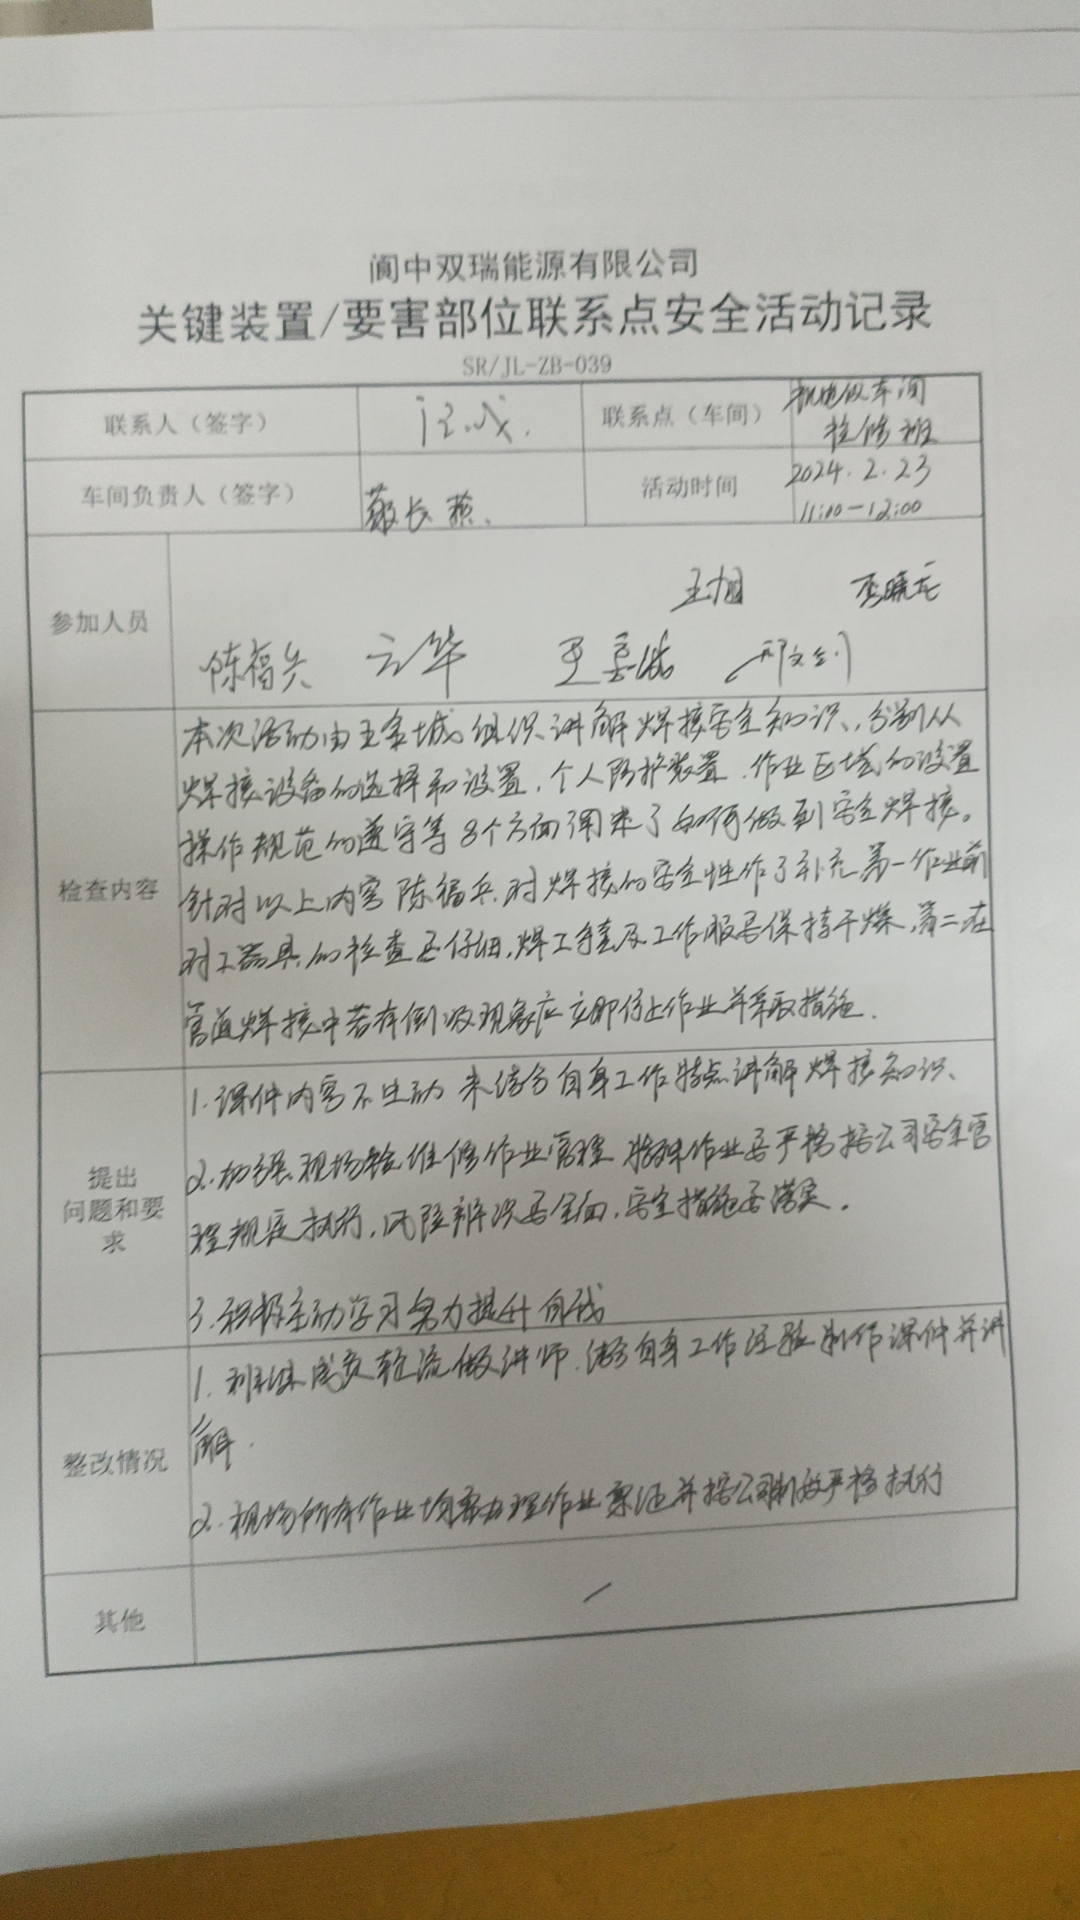 阆中双瑞能源有限公司
关键装置/要害部位联系点安全活动记录
SR/JL-ZB-039
联系人（签字）
联系点（车间）
机电仪车间
检修班
车间负责人（签字）
活动时间
2024.2.23
11:00-12:00
参加人员
王旭
陈福兵
王金城
检查内容
本次活动由王金城组织、讲解焊接安全知识，分别从
焊接设备的选择和设置，个人防护装置、作业区域的设置
操作规范的遵守等8个方面 来了如何做到安全焊接。
针对以上内容陈福兵对焊接的安全性作了补充第一作业前
对工器具的检查要仔细，焊工手套及工作服要保持干燥，第二在
管道焊接中若有倒吸现象应立即停止作业并采取措施.
提出
问题和要
求
1.课件内容不生动 未结合自身工作特点讲解焊接知识、
2.加强现场检维修作业管理 特殊作业要严格按公司安全管
理规定执行，风险辨识要全面，安全措施要落实。
3.积极主动学习努力提升自我
整改情况
1.班组成员轮流做讲师.结合自身工作经验制作课件并讲
解.
2.现场所有作业均需办理作业票证并按公司制度严格执行
其他